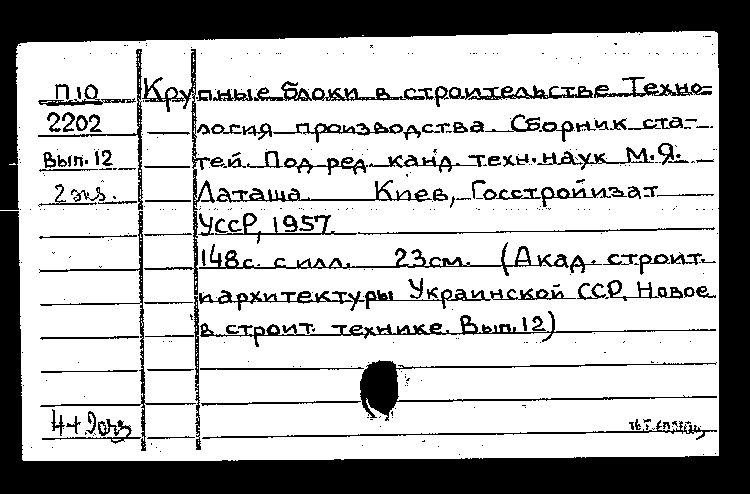 П10 Крупные блоки в строительстве Техно=
2202 логия производства. Сборник ста-
Вып. 12 тей. Под ред. канд. техн. наук М.Я.
2 экз. Латаша Киев, Госстройизат
УССР, 1957
148с. с илл. 23см. (Акад. строит.
и архитектуры Украинской ССР. Новое
в строит. технике. Вып. 12)